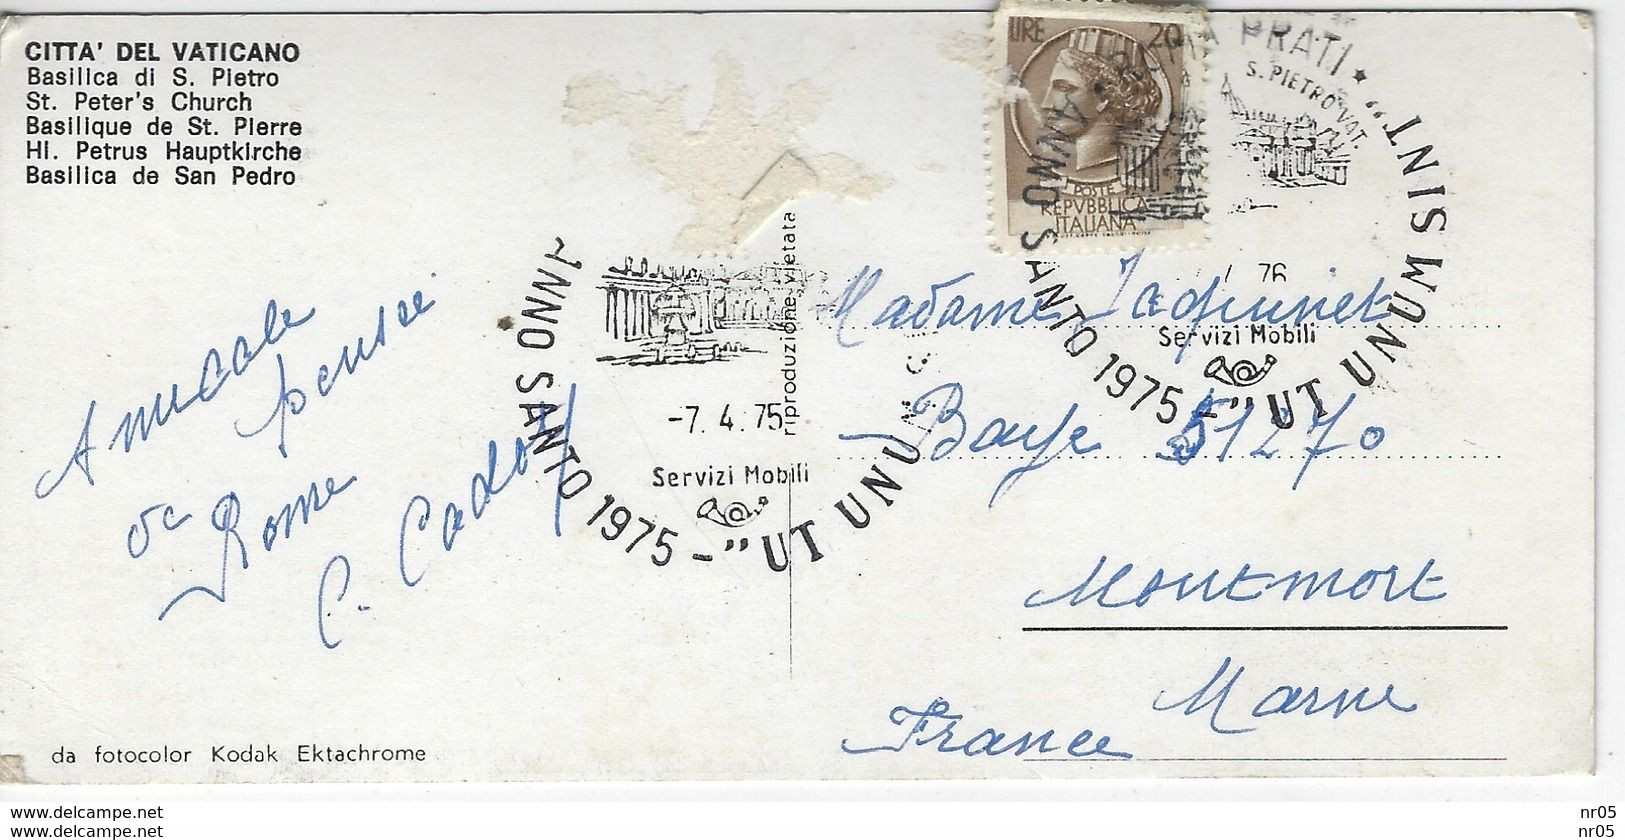 CITTA' DEL VATICANO
Basilica di S. Pietro
St. Peter's Church
Basilique de St. Pierre
Hl. Petrus Hauptkirche
Basilica de San Pedro
LIRE 20
POSTE
REPVBBLICA
ITALIANA
PRATI
S. PIETRO VAT.
ANNO SANTO 1975 - "UT UNUM SINT"
Servizi Mobili
ANNO SANTO 1975 - "UT UNUM
-7. 4. 75
Servizi Mobili
riproduzione vietata
Amicale
pensée
de
Rome
C. Cadot
Madame
Baye 51270
Montmort
Marne
France
da fotocolor Kodak Ektachrome
www.delcampe.net
www.delcampe.net
nr05
nr05